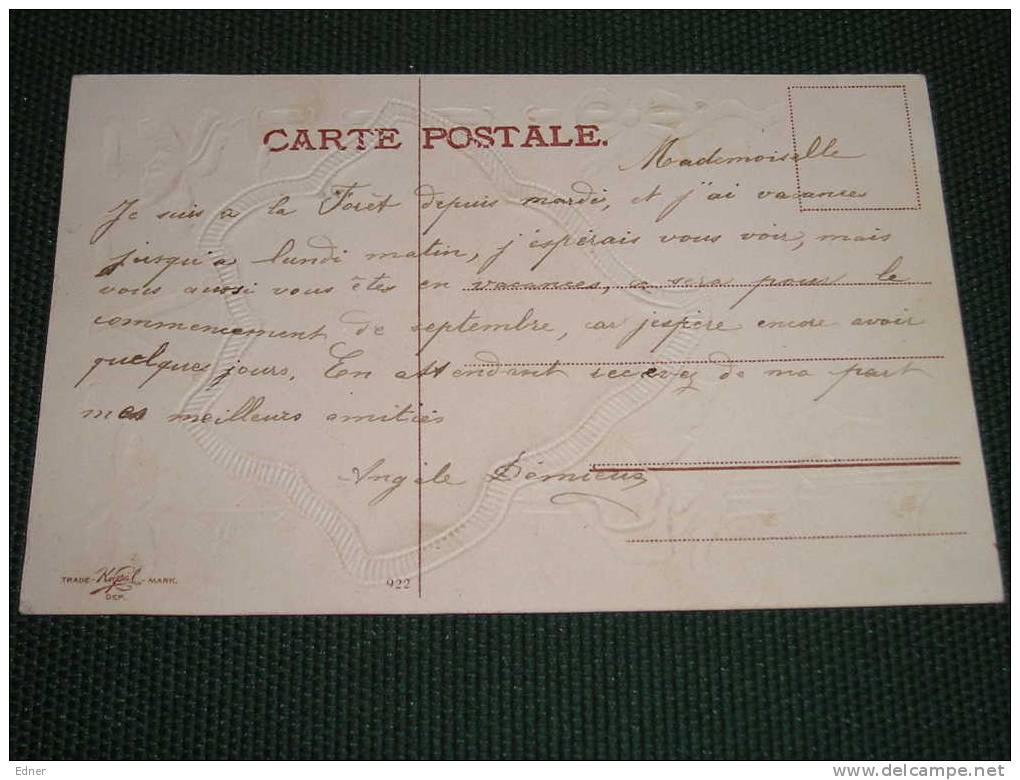 CARTE POSTALE.
Mademoiselle
Je suis a la Foret depuis mardi, et j'ai vacances
jusqu'a lundi matin, j'espérais vous voir, mais
vous aussi vous êtes en vacances, ce sera pour le
commencement de septembre, car j'espère encore avoir
quelques jours. En attendant recevez de ma part
mes meilleurs amitiés
Angèle
TRADE - MARK.
DEP.
922
Edner
www.delcampe.net